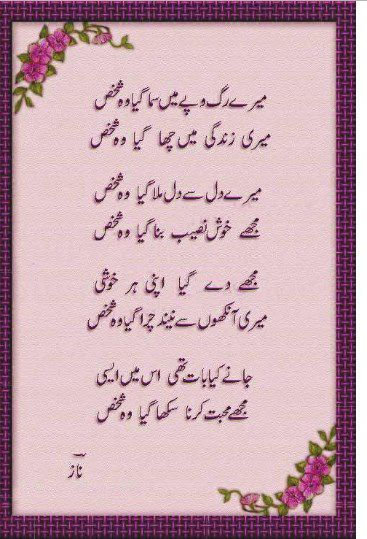 میرے رگ و پے میں سما گیا وہ شخص
میری زندگی میں چھا گیا وہ شخص
میرے دل سے دل ملا گیا وہ شخص
مجھے خوش نصیب بنا گیا وہ شخص
مجھے دے گیا اپنی ہر خوشی
میری آنکھوں سے نیند چرا گیا وہ شخص
جانے کیا بات تھی اس میں ایسی
مجھے محبت کرنا سکھا گیا وہ شخص
ناز